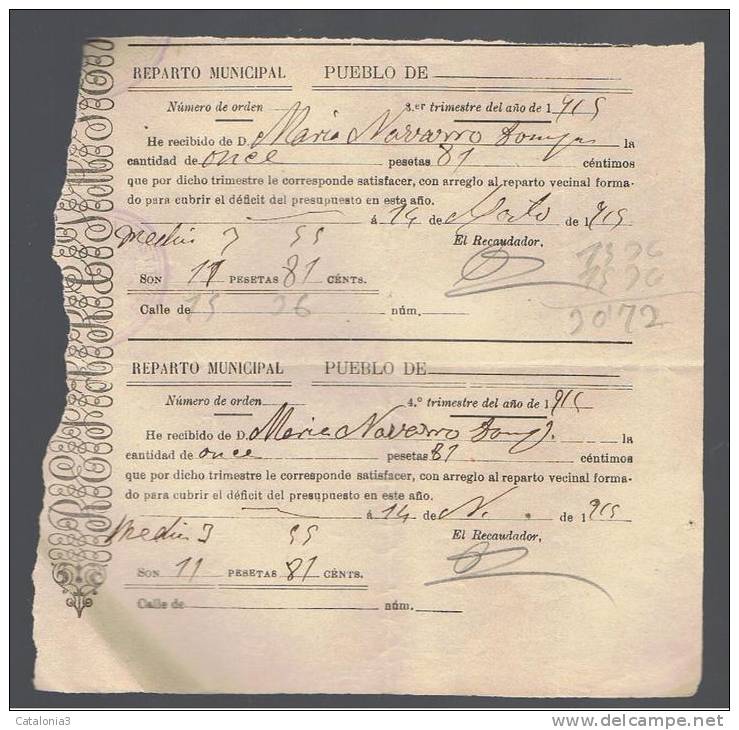 REPARTO MUNICIPAL PUEBLO DE
Número de orden 3.er trimestre del año de 1915
He recibido de D. Maria Navarro la
cantidad de once pesetas 81 céntimos
que por dicho trimestre le corresponde satisfacer, con arreglo al reparto vecinal forma-
do para cubrir el déficit del presupuesto en este año.
á 14 de de 1915
Medius 3 55 El Recaudador,
SON 11 PESETAS 81 CÉNTS.
15 36
15 36
Calle de 15 36 núm. 30'72
REPARTO MUNICIPAL PUEBLO DE
Número de orden 4.º trimestre del año de 1915
He recibido de D. Maria Navarro la
cantidad de once pesetas 81 céntimos
que por dicho trimestre le corresponde satisfacer, con arreglo al reparto vecinal forma-
do para cubrir el déficit del presupuesto en este año.
á 14 de N. de 1915
Medius 3 55 El Recaudador,
SON 11 PESETAS 81 CÉNTS.
Calle de núm.
Catalonia3
www.delcampe.net